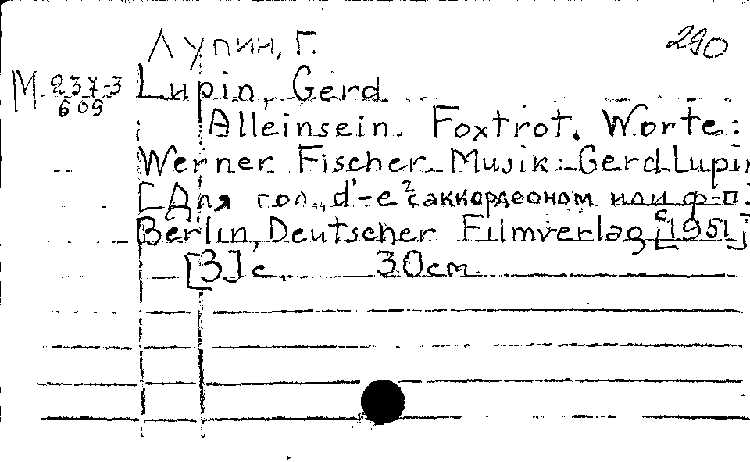 Лупин, Г.
290
М 237-3
609
Lupin, Gerd
Alleinsein. Foxtrot. Worte:
Werner Fischer. Musik: Gerd Lupin
[Для гол., d'-e² с аккордеоном или ф-п.]
Berlin, Deutscher Filmverlag, [c 1951]
[3] с. 30 см